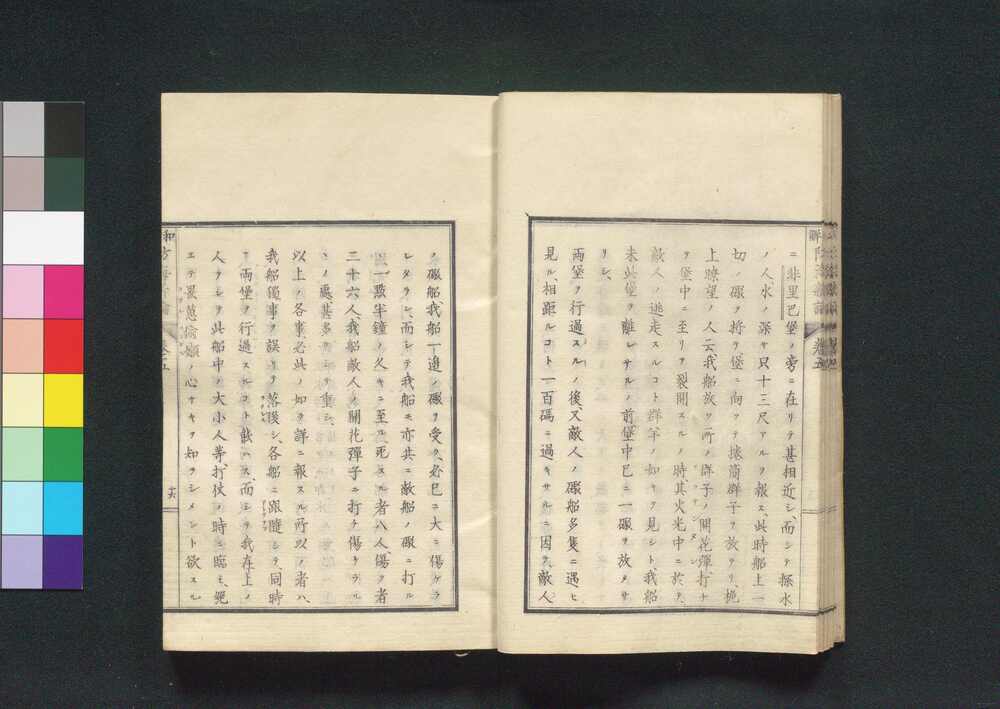 ニ非里巴堡ノ旁ニ在リテ甚相近シ、而シテ探水
ノ人、水ノ深サ只十三尺アルヲ報ス、此時船上一
切ノ礮ヲ将テ堡ニ向ヒテ據筒群子ヲ放テリ、桅
上瞭望ノ人云我船放ツ所ノ群子ノ開花彈打ナ
ヲ堡中ニ至リテ裂開スルノ時、其火光中ニ於テ、
敵人ノ逃走スルコト群羊ノ如キヲ見シト、我船
未此堡ヲ離レサルノ前堡中已ニ一礮ヲ放タサ
リシ、
兩堡ヲ行過スルノ後、又敵人ノ礮船多隻ニ遇ヒ
見ル相距ルコト一百碼ニ過キサルニ因テ、敵人
ノ礮船我船一邊ノ礮ヲ受ク、必已ニ大ニ傷ケラ
レタラン、而シテ我船モ亦共ニ敵船ノ礮ニ打ル
一點半鐘ノ久キニ至ル、死スル者八人、傷ク者
三十六人、我船敵人ノ開花彈子ニ打チ傷キラル
ノ處甚多クシテ重シ、
以上ノ各事、必此ノ如ク詳ニ報スル所以ノ者ハ、
我船獨事ヲ誤リテ落後シ、各船ニ跟隨シテ、同時
ニ兩堡ヲ行過スルコト能ハス、而シテ我在上ノ
人ヲシテ此船中ノ大小人等、打仗ノ時ニ臨モ、絕
エテ畏葸偷嬾ノ心ナキヲ知ラシメント欲スル